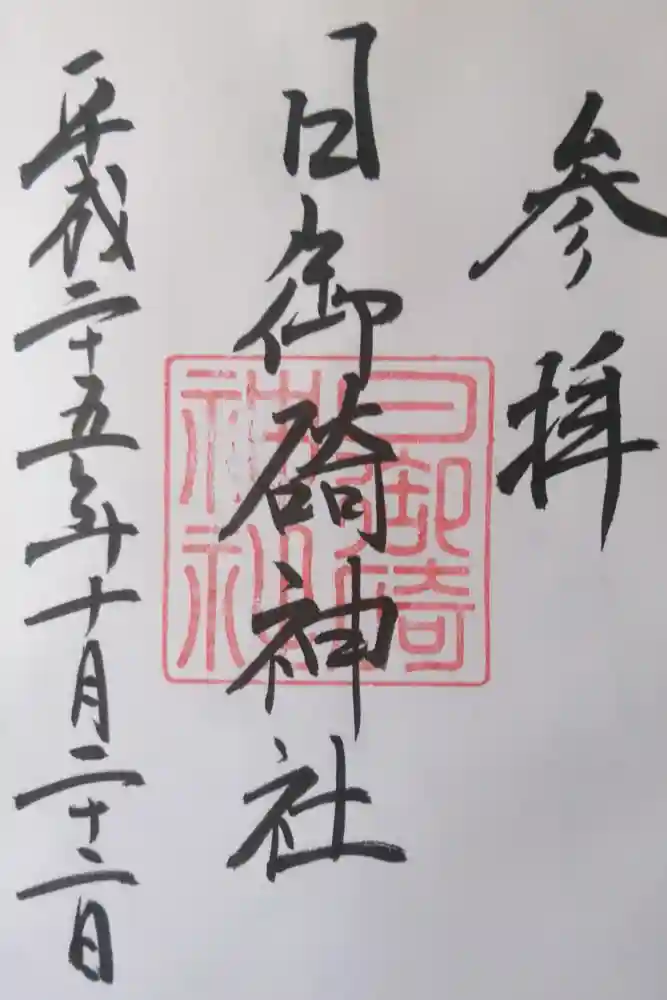 参拝
日御碕神社
平成二十五年十月二十二日
日御碕神社